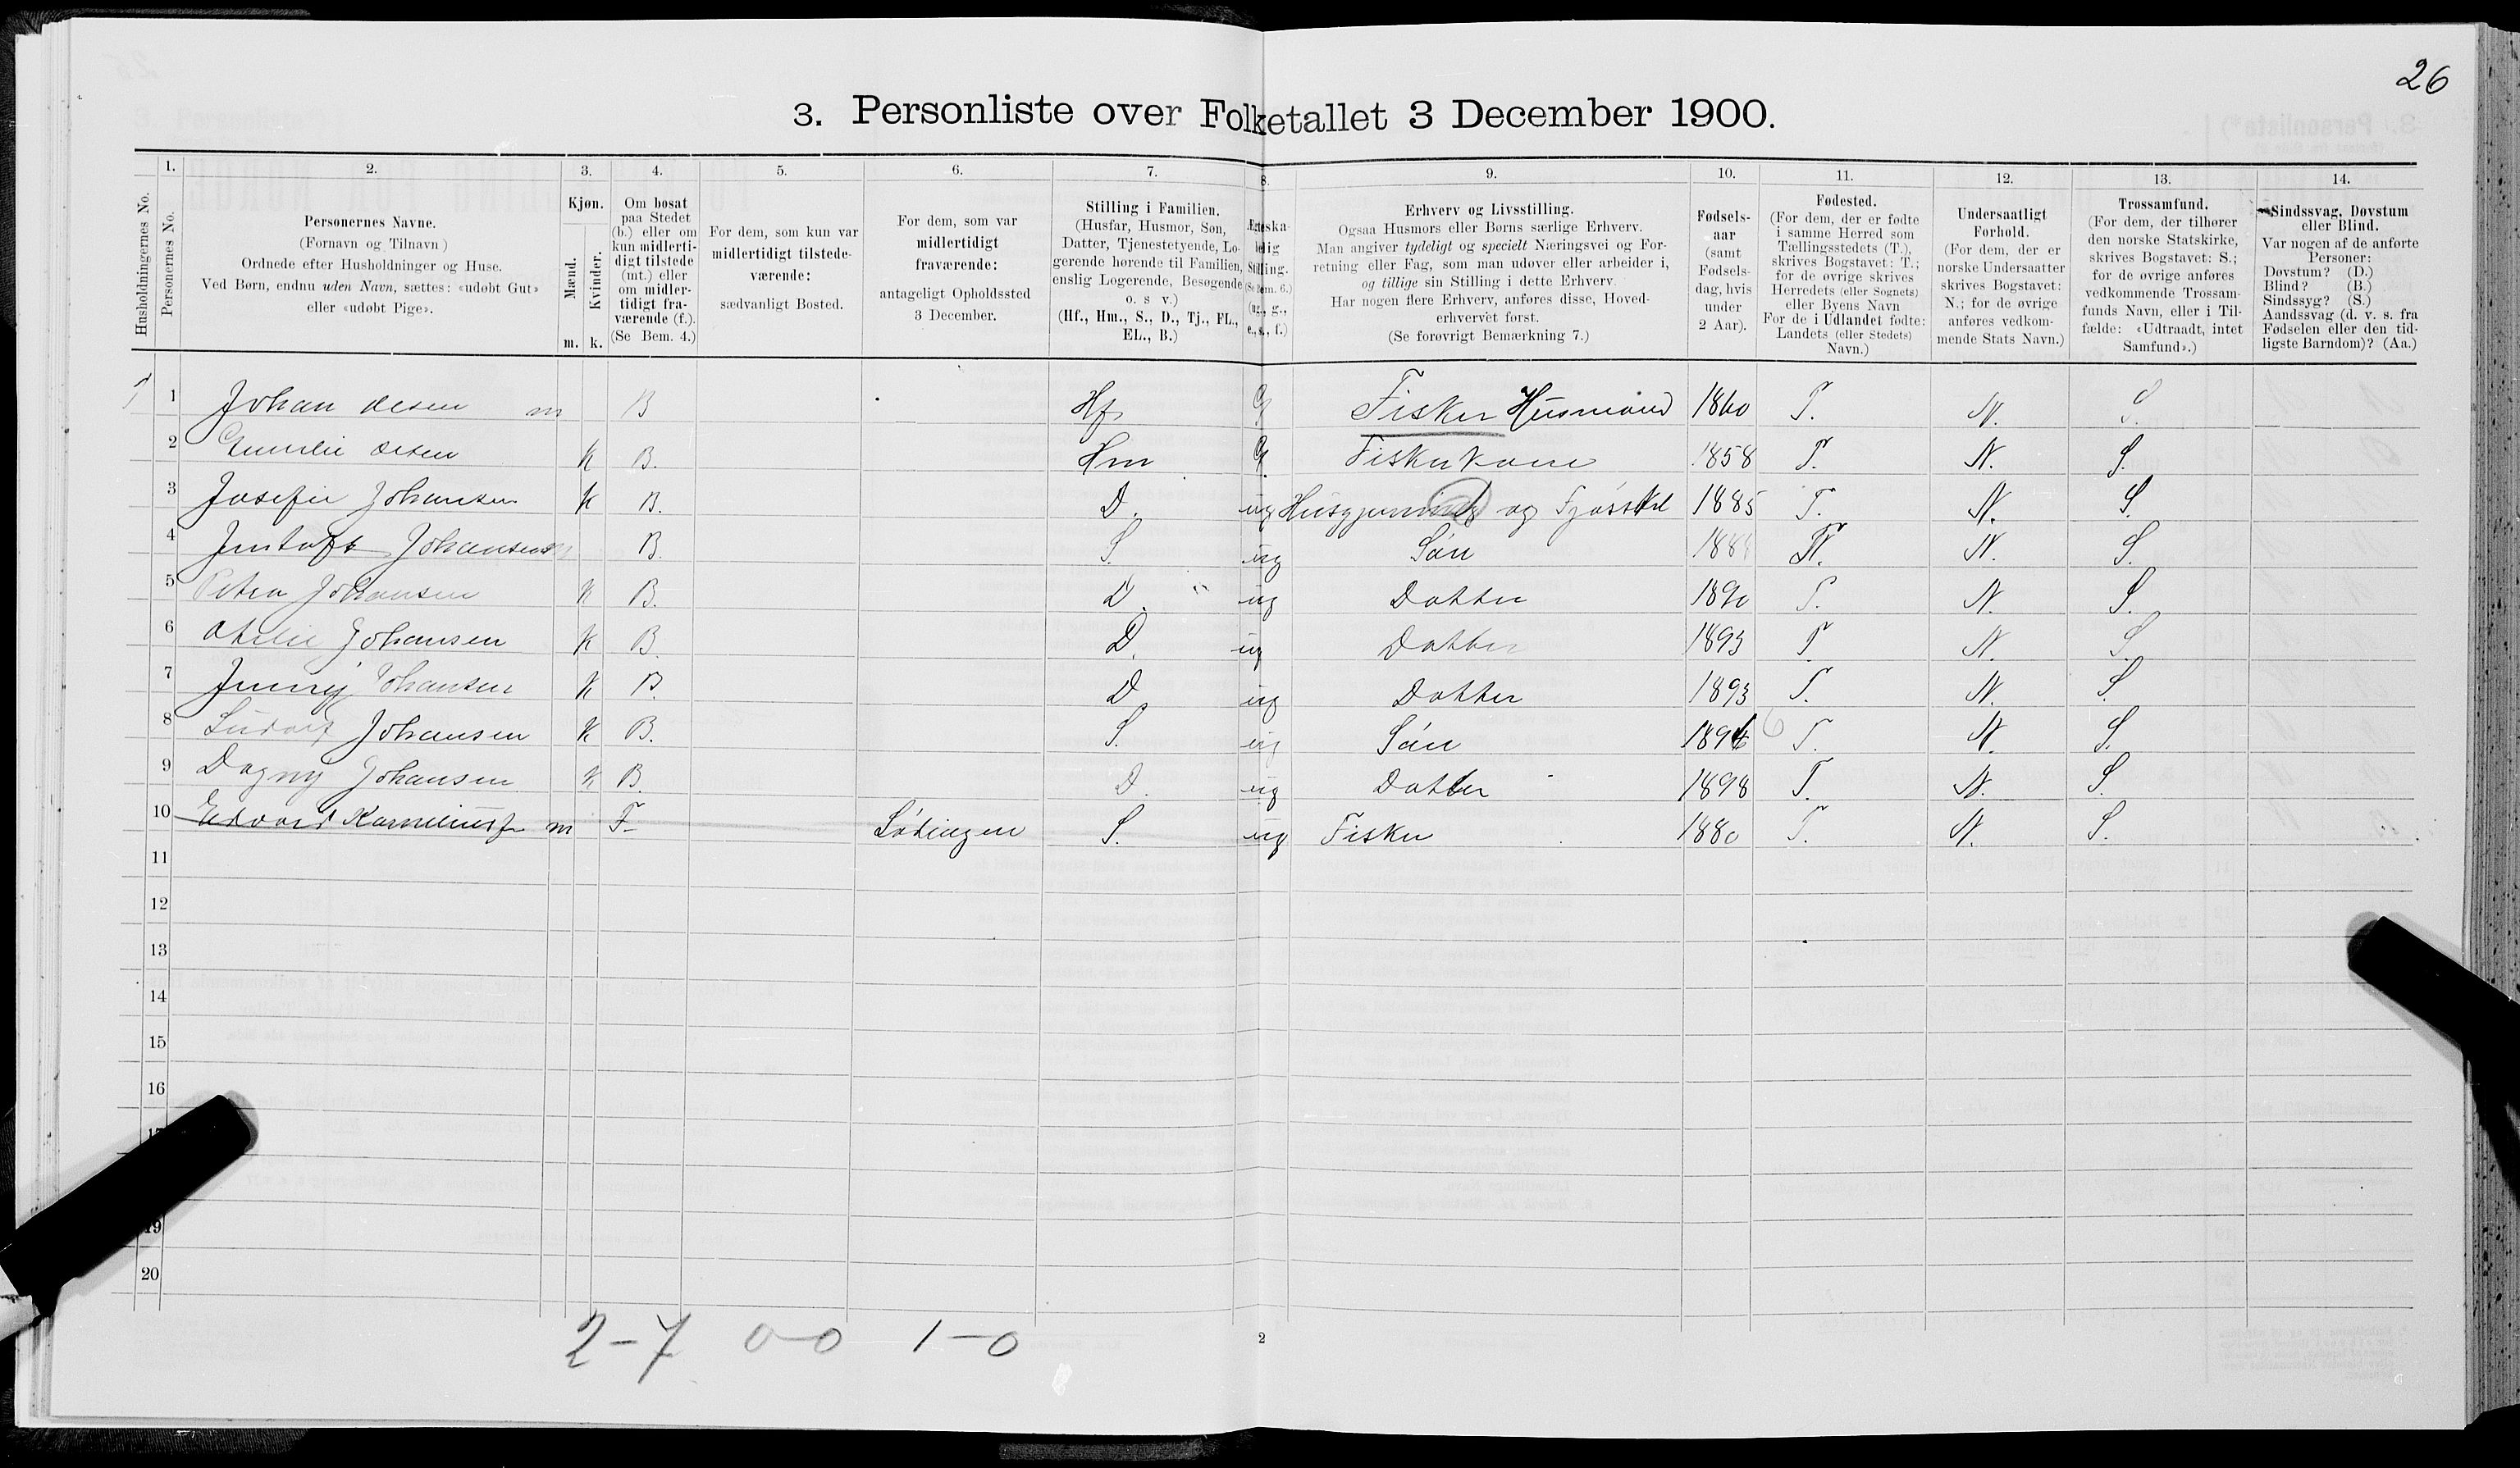 26
3. Personliste over Folketallet 3 December 1900.
Husholdningernes No.
1.
Personernes No.
2.
Personernes Navne.
(Fornavn og Tilnavn)
Ordnede efter Husholdninger og Huse.
Ved Børn, endnu uden Navn, sættes: «udøbt Gut»
eller «udøbt Pige».
3.
Kjøn.
Mænd.
Kvinder.
m. k.
4.
Om bosat
paa Stedet
(b.) eller om
kun midlerti-
digt tilstede
(mt.) eller
om midler-
tidigt fra-
værende (f.).
(Se Bem. 4.)
5.
For dem, som kun var
midlertidigt tilstede-
værende:
sædvanligt Bosted.
6.
For dem, som var
midlertidigt
fraværende:
antageligt Opholdssted
3 December.
7.
Stilling i Familien.
(Husfar, Husmor, Søn,
Datter, Tjenestetyende, Lo-
gerende hørende til Familien,
enslig Logerende, Besøgende
o. s v.)
(Hf., Hm., S., D., Tj., FL.,
EL., B.)
8.
Stilling.
(Se Bem. 6.)
(ug., g.,
e., s., f.)
9.
Erhverv og Livsstilling.
Ogsaa Husmors eller Børns særlige Erhverv.
Man angiver tydeligt og specielt Næringsvei og For-
retning eller Fag, som man udøver eller arbeider i,
og tillige sin Stilling i dette Erhverv.
Har nogen flere Erhverv, anføres disse, Hoved-
erhvervet først.
(Se forøvrigt Bemærkning 7.)
10.
Fødsels-
aar
(samt
Fødsels-
dag, hvis
under
2 Aar).
11.
Fødested.
(For dem, der er fødte
i samme Herred som
Tællingsstedets (T.),
skrives Bogstavet: T.;
for de øvrige skrives
Herredets (eller Sognets)
eller Byens Navn
For de i Udlandet fødte:
Landets (eller Stedets)
Navn.)
12.
Undersaatligt
Forhold.
(For dem, der er
norske Undersaatter
skrives Bogstavet:
N.; for de øvrige
anføres vedkom-
mende Stats Navn.)
13.
Trossamfund.
(For dem, der tilhører
den norske Statskirke,
skrives Bogstavet: S.;
for de øvrige anføres
vedkommende Trossam-
funds Navn, eller i Til-
fælde: «Udtraadt, intet
Samfund».)
14.
Sindssvag, Døvstum
eller Blind.
Var nogen af de anførte
Personer:
Døvstum? (D.)
Blind? (B.)
Sindssyg? (S.)
Aandssvag (d. v. s. fra
Fødselen eller den tid-
ligste Barndom)? (Aa.)
1 Johan Olsen m B Hf G Fisker Husmand 1860 T. N. S.
2 Emelie Olsen K B. Hm G. Fiskerkone 1858 T. N. S.
3 Josefie Johansen K B. D. ug og Fjösstel 1885 T. N. S.
4 Johansen B. S. ug Sön T. N. S.
5 Petra Johansen K B. D. ug Datter 1890 T. N. S.
6 Otelie Johansen K B. D. ug Datter 1893 T. N. S.
7 Jenny Johansen K B. D ug Datter 1893 T. N. S.
8 Ludolf Johansen K B. S. ug Sön 6 T. N. S.
9 Dagny Johansen K B. D. ug Datter 1898 T. N. S.
10 Edvard m F Lödingen S. ug Fisker 1880 T. N. S.
11
12
13
14
15
16
19
20
2-7 0-0 1-0
2